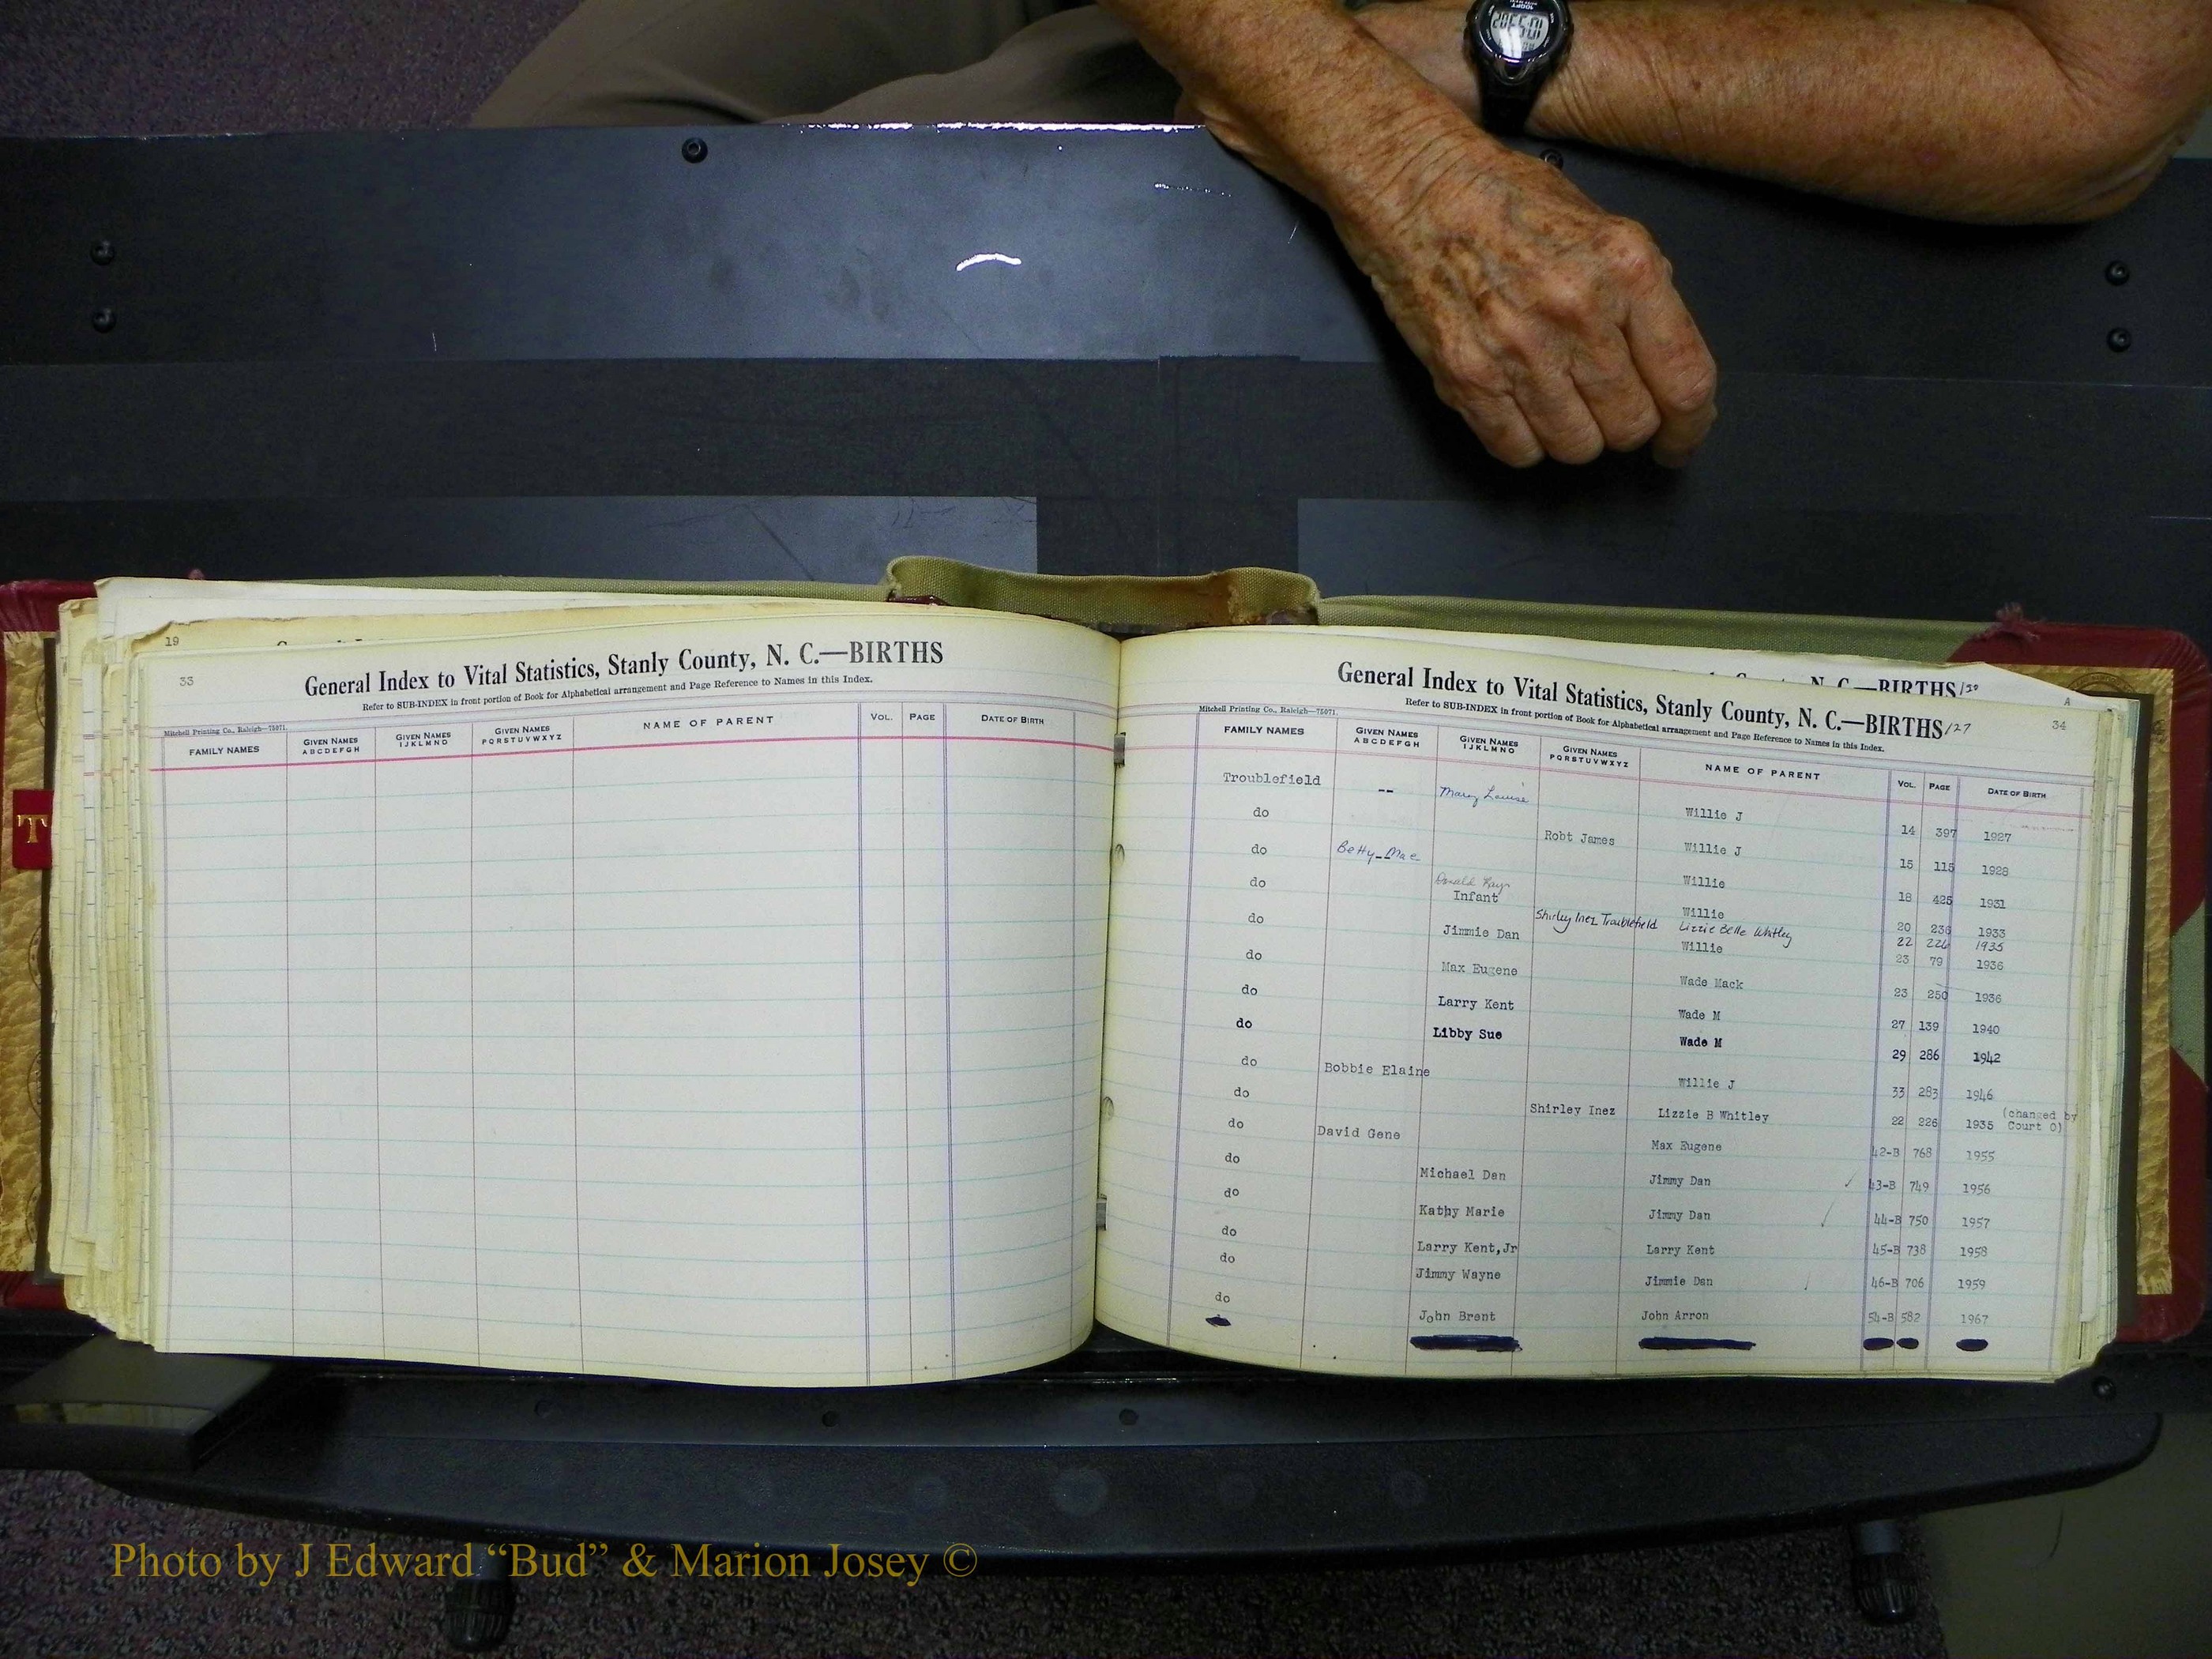 100FT
19
33
General Index to Vital Statistics, Stanly County, N. C.—BIRTHS
Refer to SUB-INDEX in front portion of Book for Alphabetical arrangement and Page Reference to Names in this Index.
Mitchell Printing Co., Raleigh—75071.
FAMILY NAMES GIVEN NAMES ABCDEFGH GIVEN NAMES IJKLMNO GIVEN NAMES PQRSTUVWXYZ NAME OF PARENT VOL. PAGE DATE OF BIRTH
T
N. C.—BIRTHS
A
34
General Index to Vital Statistics, Stanly County, N. C.—BIRTHS/27
Refer to SUB-INDEX in front portion of Book for Alphabetical arrangement and Page Reference to Names in this Index.
Mitchell Printing Co., Raleigh—75071.
FAMILY NAMES GIVEN NAMES ABCDEFGH GIVEN NAMES IJKLMNO GIVEN NAMES PQRSTUVWXYZ NAME OF PARENT VOL. PAGE DATE OF BIRTH
Troublefield -- Mary Louise Willie J 14 397 1927
do Robt James Willie J 15 115 1928
do Betty Mae Willie 18 425 1931
do Donald Ray Infant Willie 20 236 1933
Shirley Inez Troublefield Lizzie Belle Whitley 22 226 1935
do Jimmie Dan Willie 23 79 1936
do Max Eugene Wade Mack 23 250 1936
do Larry Kent Wade M 27 139 1940
do Libby Sue Wade M 29 286 1942
do Bobbie Elaine Willie J 33 283 1946
do Shirley Inez Lizzie B Whitley 22 226 1935 (changed by Court O)
do David Gene Max Eugene 42-B 768 1955
do Michael Dan Jimmy Dan 43-B 749 1956
do Kathy Marie Jimmy Dan 44-B 750 1957
do Larry Kent,Jr Larry Kent 45-B 738 1958
do Jimmy Wayne Jimmie Dan 46-B 706 1959
do John Brent John Arron 54-B 582 1967
Photo by J Edward “Bud” & Marion Josey ©